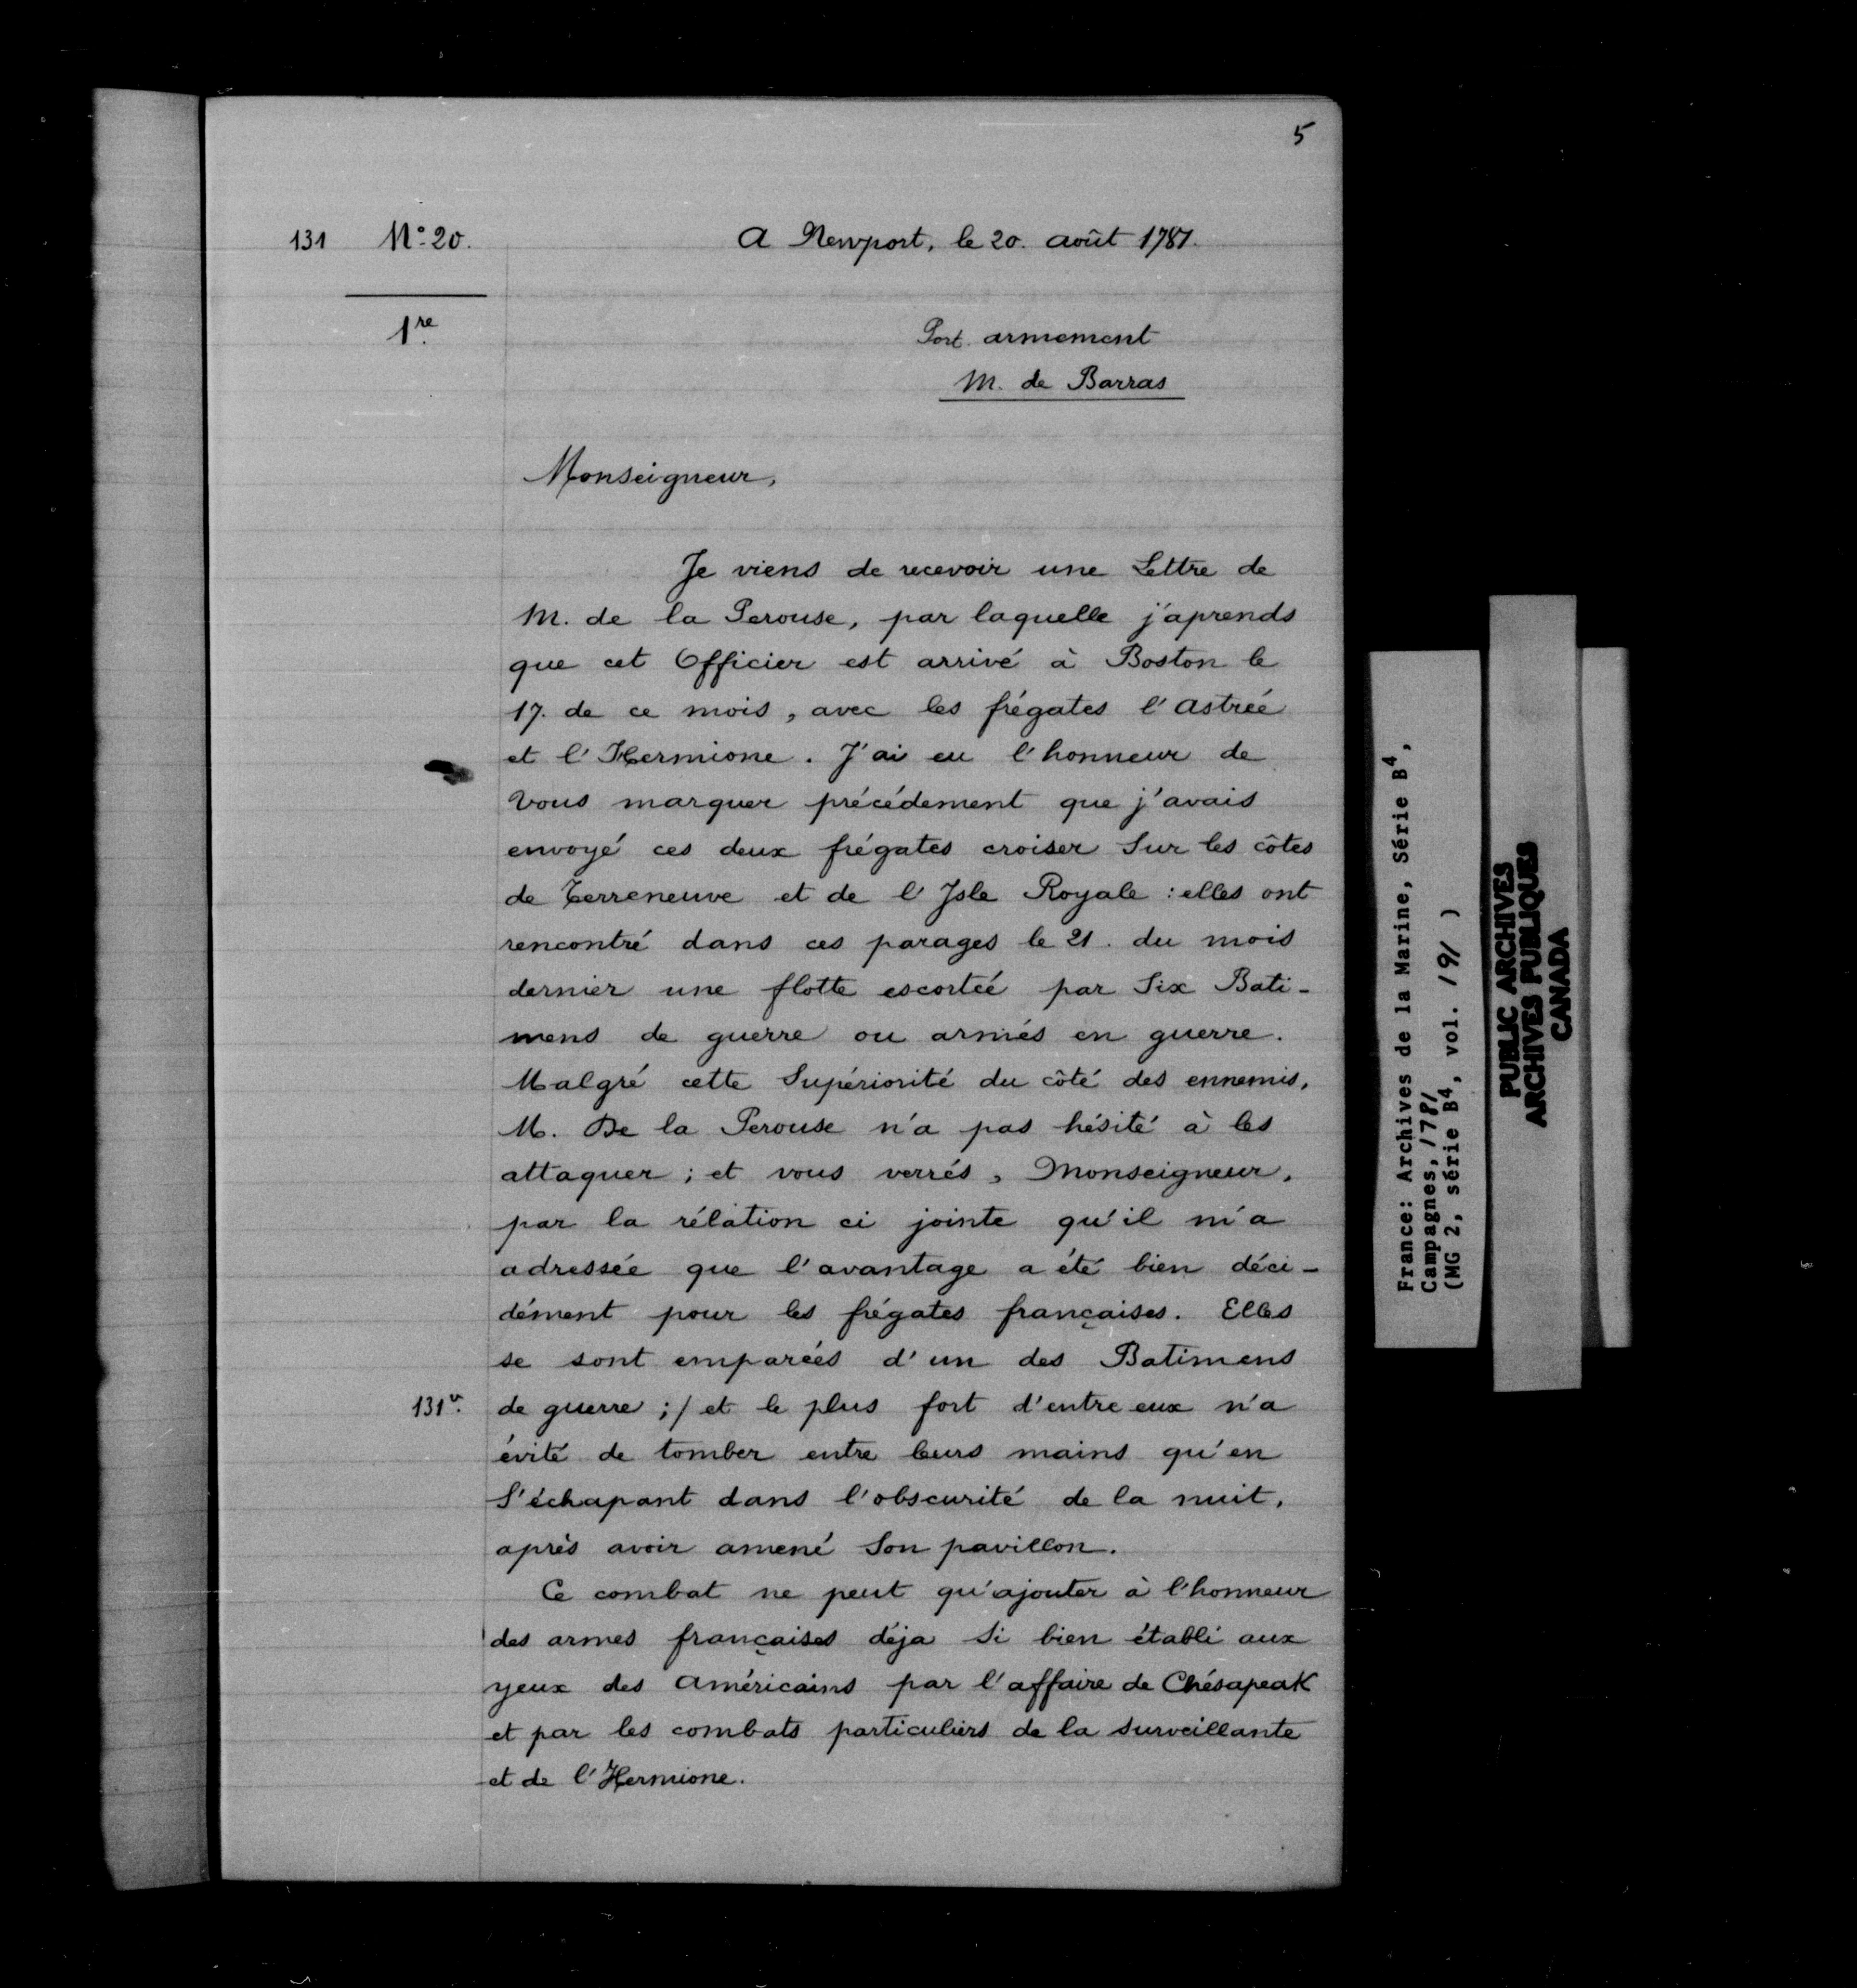 5
131 Nº 20. A Newport, le 20. août 1781.
1re.
Port. armement
M. de Barras
Monseigneur,
Je viens de recevoir une Lettre de
M. de la Perouse, par laquelle j'aprends
que cet Officier est arrivé à Boston le
17. de ce mois, avec les frégates l'Astrée
et l'Hermione. J'ai eu l'honneur de
Vous marquer précédement que j'avais
envoyé ces deux frégates croiser Sur les côtes
de Terreneuve et de l'Isle Royale : elles ont
rencontré dans ces parages le 21. du mois
dernier une flotte escortée par Six Bati-
mens de guerre ou armés en guerre.
Malgré cette Supériorité du côté des ennemis,
M. De la Perouse n'a pas hésité à les
attaquer ; et vous verrés, Monseigneur,
par la rélation ci jointe qu'il m'a
adressée que l'avantage a été bien déci-
dément pour les frégates françaises. Elles
se sont emparées d'un des Batimens
131v. de guerre ;/ et le plus fort d'entre eux n'a
évité de tomber entre leurs mains qu'en
S'échapant dans l'obscurité de la nuit,
après avoir amené Son pavillon.
Ce combat ne peut qu'ajouter à l'honneur
des armes françaises déja Si bien établi aux
yeux des Américains par l'affaire de Chésapeak
et par les combats particuliers de la Surveillante
et de l'Hermione.
France: Archives de la Marine, Série B4,
Campagnes, 1781
(MG 2, série B4, vol. 191 )
PUBLIC ARCHIVES
ARCHIVES PUBLIQUES
CANADA